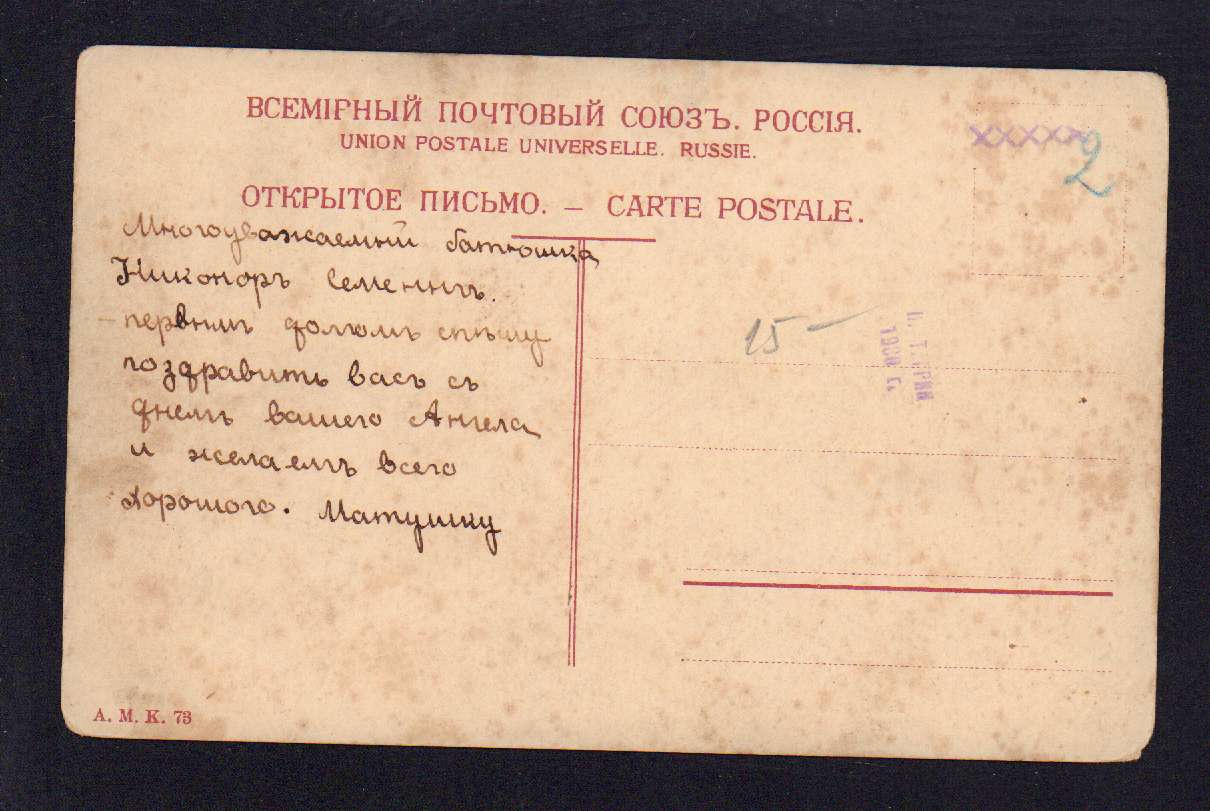 ВСЕМІРНЫЙ ПОЧТОВЫЙ СОЮЗЪ. РОССІЯ.
UNION POSTALE UNIVERSELLE. RUSSIE.
ОТКРЫТОЕ ПИСЬМО. — CARTE POSTALE.
Многоуважаемий батюшка
Никоноръ Семенычъ.
первимъ долгомъ спѣшу
поздравить васъ съ
днемъ вашего Ангела
и желаемъ всего
хорошого. Матушку
xxxxx
2
15 —
А. М. К. 73